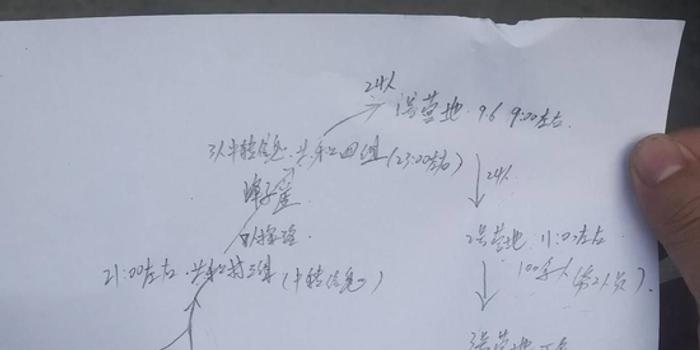 24人
1号营地. 9.6 9:00左右.
3人中转信息. 共和四组 (23:00左右)
24人
2号营地 11:00左右
21:00左右. 共和村三组 (中转信息)
100多人
3号营地